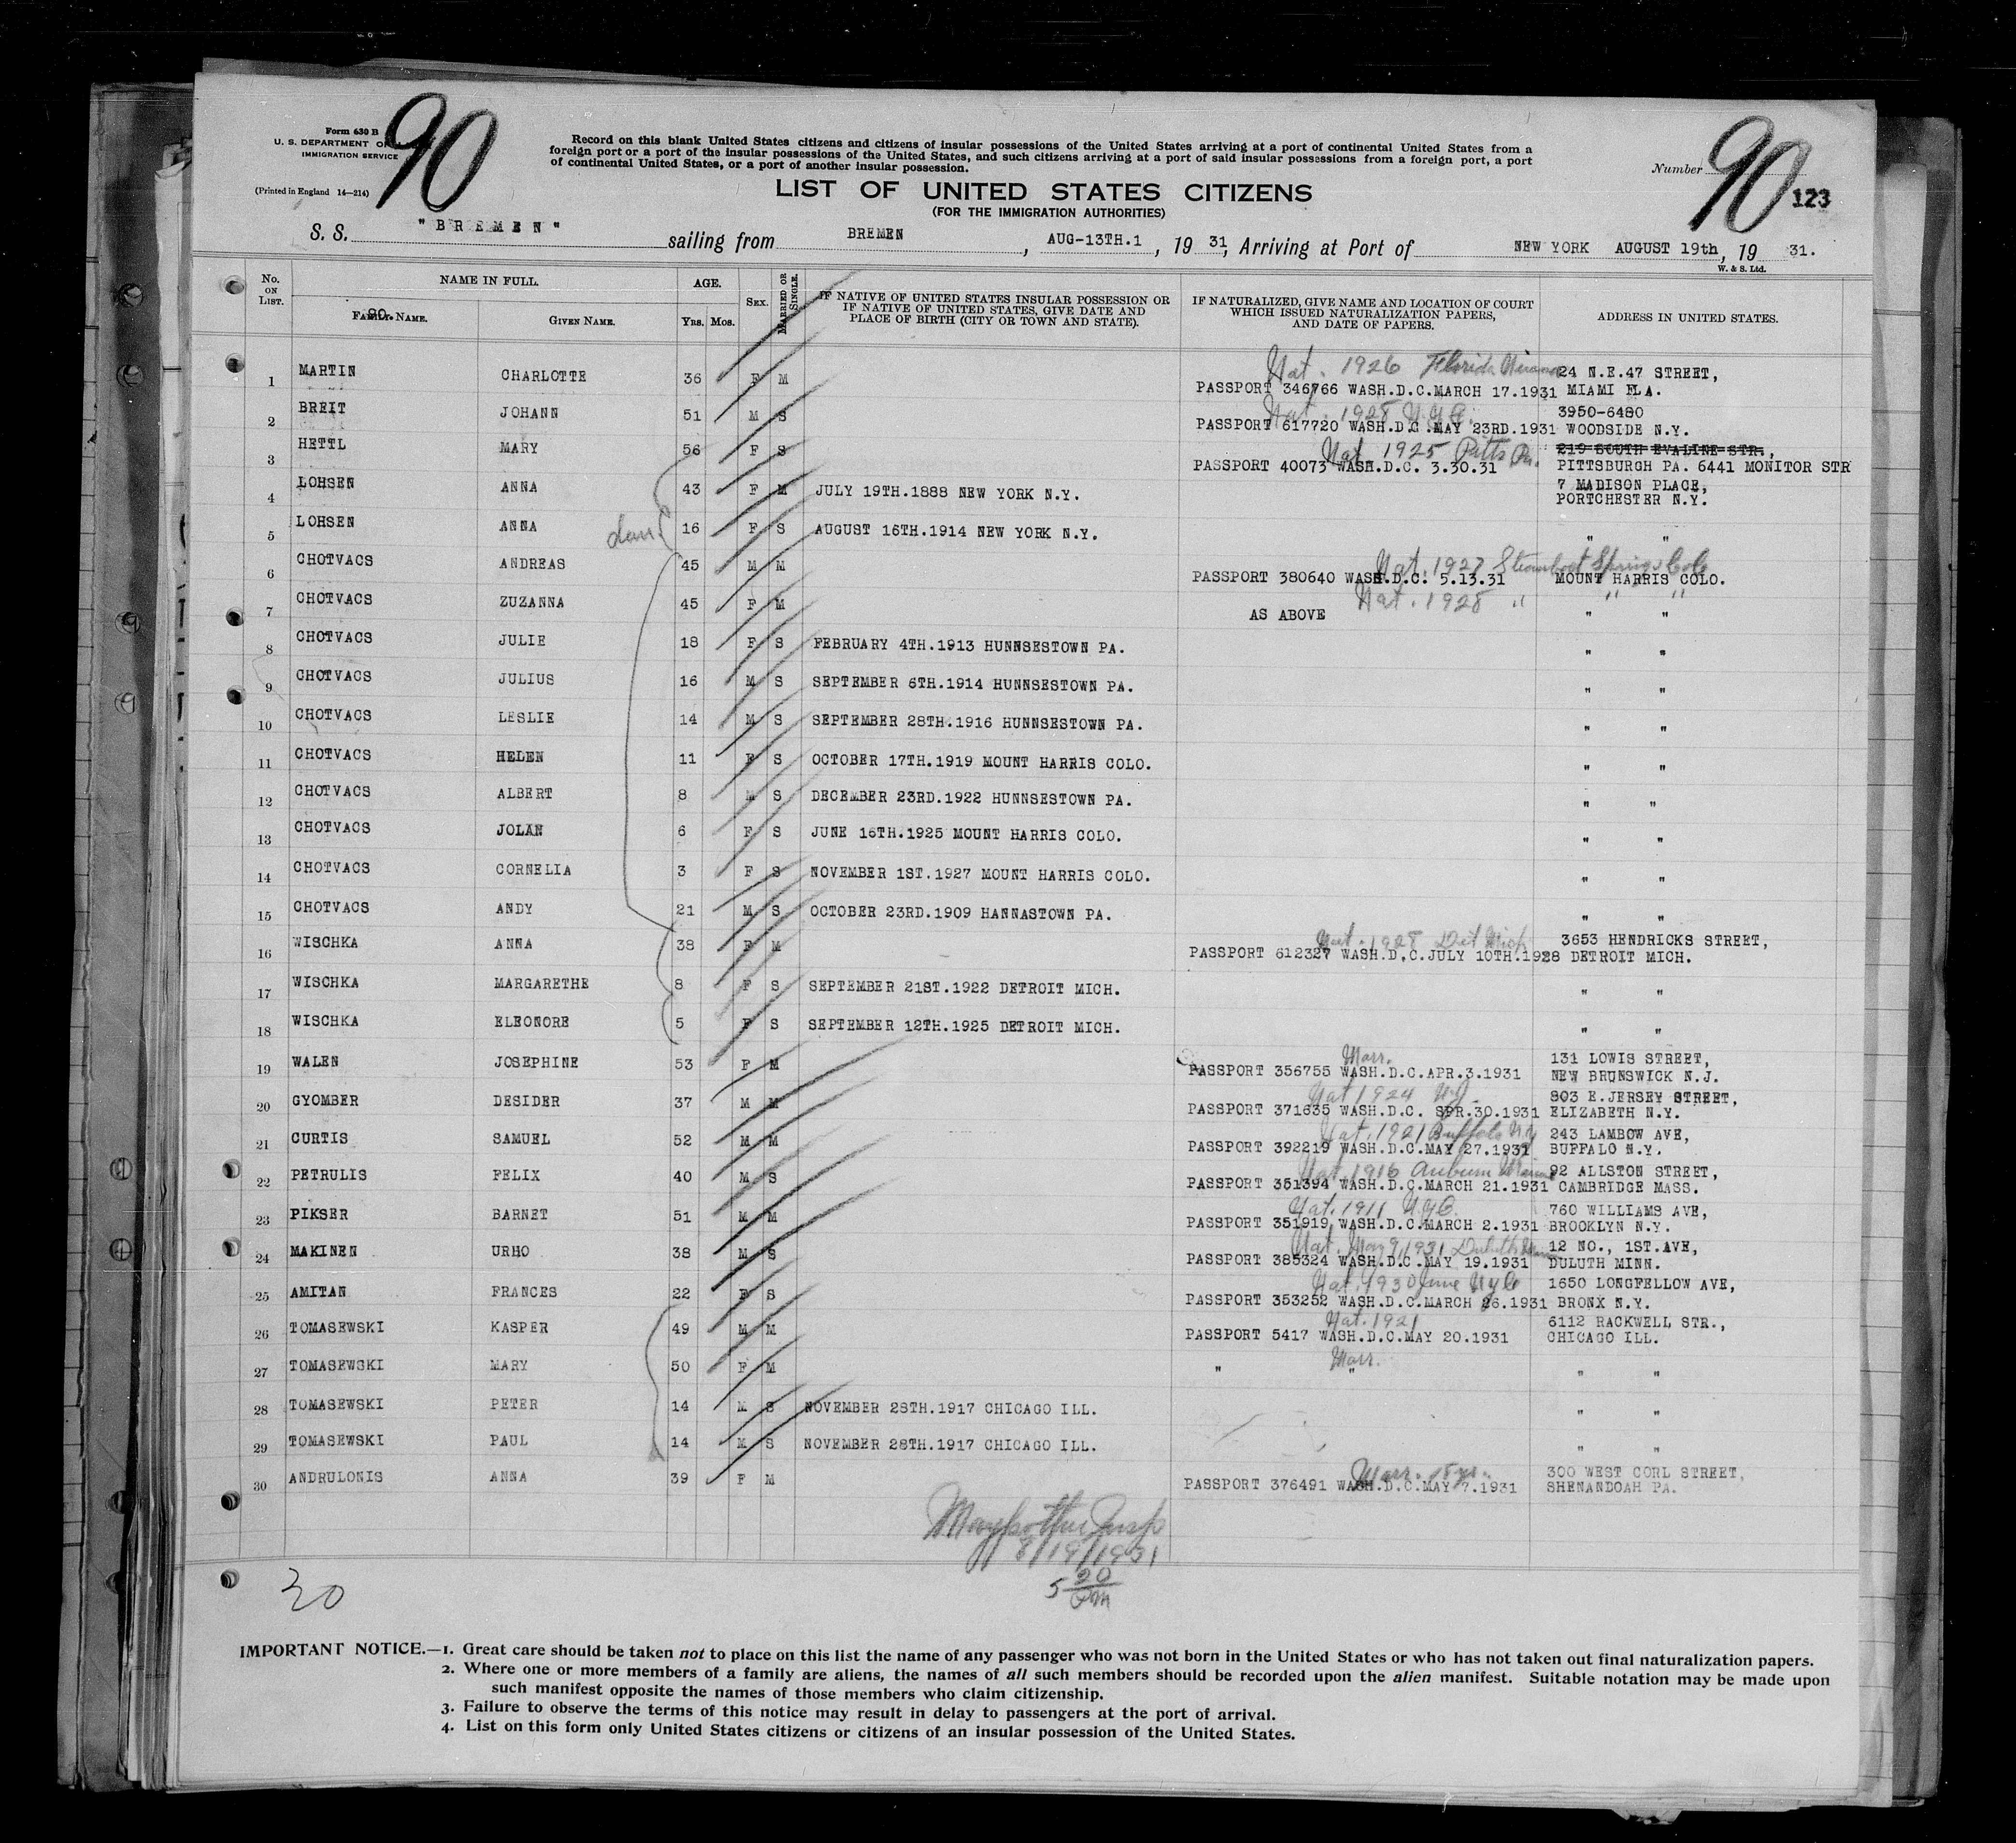 90
90
123
Form 630 B
U. S. DEPARTMENT OF
IMMIGRATION SERVICE
(Printed in England 14—214)
Record on this blank United States citizens and citizens of insular possessions of the United States arriving at a port of continental United States from a
foreign port or a port of the insular possessions of the United States, and such citizens arriving at a port of said insular possessions from a foreign port, a port
of continental United States, or a port of another insular possession.
Number
LIST OF UNITED STATES CITIZENS
(FOR THE IMMIGRATION AUTHORITIES)
S. S. "BREMEN" sailing from BREMEN, AUG-13TH.1, 19 31, Arriving at Port of NEW YORK AUGUST 19th, 19 31.
W. & S. Ltd.
No. ON LIST. NAME IN FULL. AGE. SEX. MARRIED OR SINGLE. IF NATIVE OF UNITED STATES INSULAR POSSESSION OR IF NATIVE OF UNITED STATES, GIVE DATE AND PLACE OF BIRTH (CITY OR TOWN AND STATE). IF NATURALIZED, GIVE NAME AND LOCATION OF COURT WHICH ISSUED NATURALIZATION PAPERS, AND DATE OF PAPERS. ADDRESS IN UNITED STATES.
90.
FAMILY NAME. GIVEN NAME. Yrs. Mos.
1 MARTIN CHARLOTTE 36 F M Nat. 1926 Florida 24 N.E.47 STREET,
PASSPORT 346766 WASH.D.C.MARCH 17.1931 MIAMI FLA.
2 BREIT JOHANN 51 M S Nat. 1928 N.Y.C. 3950-6480
PASSPORT 617720 WASH.D.C.MAY 23RD.1931 WOODSIDE N.Y.
3 HETTL MARY 56 F S Nat 1925 Pitts Pa. 219 SOUTH EVALINE STR.,
PASSPORT 40073 WASH.D.C. 3.30.31 PITTSBURGH PA. 6441 MONITOR STR
4 LOHSEN ANNA 43 F M JULY 19TH.1888 NEW YORK N.Y. 7 MADISON PLACE,
PORTCHESTER N.Y.
5 LOHSEN ANNA 16 F S AUGUST 16TH.1914 NEW YORK N.Y. " "
6 CHOTVACS ANDREAS 45 M M Nat. 1927 Steamboat Springs Colo
PASSPORT 380640 WASH.D.C. 5.13.31 MOUNT HARRIS COLO.
7 CHOTVACS ZUZANNA 45 F M Nat. 1928 " " "
AS ABOVE " "
8 CHOTVACS JULIE 18 F S FEBRUARY 4TH.1913 HUNNSESTOWN PA. " "
9 CHOTVACS JULIUS 16 M S SEPTEMBER 6TH.1914 HUNNSESTOWN PA. " "
10 CHOTVACS LESLIE 14 M S SEPTEMBER 28TH.1916 HUNNSESTOWN PA. " "
11 CHOTVACS HELEN 11 F S OCTOBER 17TH.1919 MOUNT HARRIS COLO. " "
12 CHOTVACS ALBERT 8 M S DECEMBER 23RD.1922 HUNNSESTOWN PA. " "
13 CHOTVACS JOLAN 6 F S JUNE 16TH.1925 MOUNT HARRIS COLO. " "
14 CHOTVACS CORNELIA 3 F S NOVEMBER 1ST.1927 MOUNT HARRIS COLO. " "
15 CHOTVACS ANDY 21 M S OCTOBER 23RD.1909 HANNASTOWN PA. " "
16 WISCHKA ANNA 38 F M Nat. 1928 Det Mich 3653 HENDRICKS STREET,
PASSPORT 612327 WASH.D.C.JULY 10TH.1928 DETROIT MICH.
17 WISCHKA MARGARETHE 8 F S SEPTEMBER 21ST.1922 DETROIT MICH. " "
18 WISCHKA ELEONORE 5 F S SEPTEMBER 12TH.1925 DETROIT MICH. " "
19 WALEN JOSEPHINE 53 F M Marr. 131 LOWIS STREET,
PASSPORT 356755 WASH.D.C.APR.3.1931 NEW BRUNSWICK N.J.
20 GYOMBER DESIDER 37 M M Nat 1924 N.J. 803 E.JERSEY STREET,
PASSPORT 371635 WASH.D.C. SPR.30.1931 ELIZABETH N.Y.
21 CURTIS SAMUEL 52 M M Nat. 1921 Buffalo N.Y. 243 LAMBOW AVE,
PASSPORT 392219 WASH.D.C.MAY 27.1931 BUFFALO N.Y.
22 PETRULIS FELIX 40 M S Nat. 1916 Auburn Maine 92 ALLSTON STREET,
PASSPORT 351394 WASH.D.C.MARCH 21.1931 CAMBRIDGE MASS.
23 PIKSER BARNET 51 M M Nat. 1911 N.Y.C. 760 WILLIAMS AVE,
PASSPORT 351919 WASH.D.C.MARCH 2.1931 BROOKLYN N.Y.
24 MAKINEN URHO 38 M S Nat. May 9, 1931 Duluth Minn 12 NO., 1ST.AVE,
PASSPORT 385324 WASH.D.C.MAY 19.1931 DULUTH MINN.
25 AMITAN FRANCES 22 F S Nat. 1930 June N.Y.C 1650 LONGFELLOW AVE,
PASSPORT 353252 WASH.D.C.MARCH 26.1931 BRONX N.Y.
26 TOMASEWSKI KASPER 49 M M Nat. 1921 6112 RACKWELL STR.,
PASSPORT 5417 WASH.D.C.MAY 20.1931 CHICAGO ILL.
27 TOMASEWSKI MARY 50 F M " Marr. " " "
28 TOMASEWSKI PETER 14 M S NOVEMBER 28TH.1917 CHICAGO ILL. " "
29 TOMASEWSKI PAUL 14 M S NOVEMBER 28TH.1917 CHICAGO ILL. " "
30 ANDRULONIS ANNA 39 F M Marr. 18 yr. 300 WEST CORL STREET,
PASSPORT 376491 WASH.D.C.MAY 7.1931 SHENANDOAH PA.
Insp
8/19/1931
5 20 PM
30
IMPORTANT NOTICE.—1. Great care should be taken not to place on this list the name of any passenger who was not born in the United States or who has not taken out final naturalization papers.
2. Where one or more members of a family are aliens, the names of all such members should be recorded upon the alien manifest. Suitable notation may be made upon
such manifest opposite the names of those members who claim citizenship.
3. Failure to observe the terms of this notice may result in delay to passengers at the port of arrival.
4. List on this form only United States citizens or citizens of an insular possession of the United States.